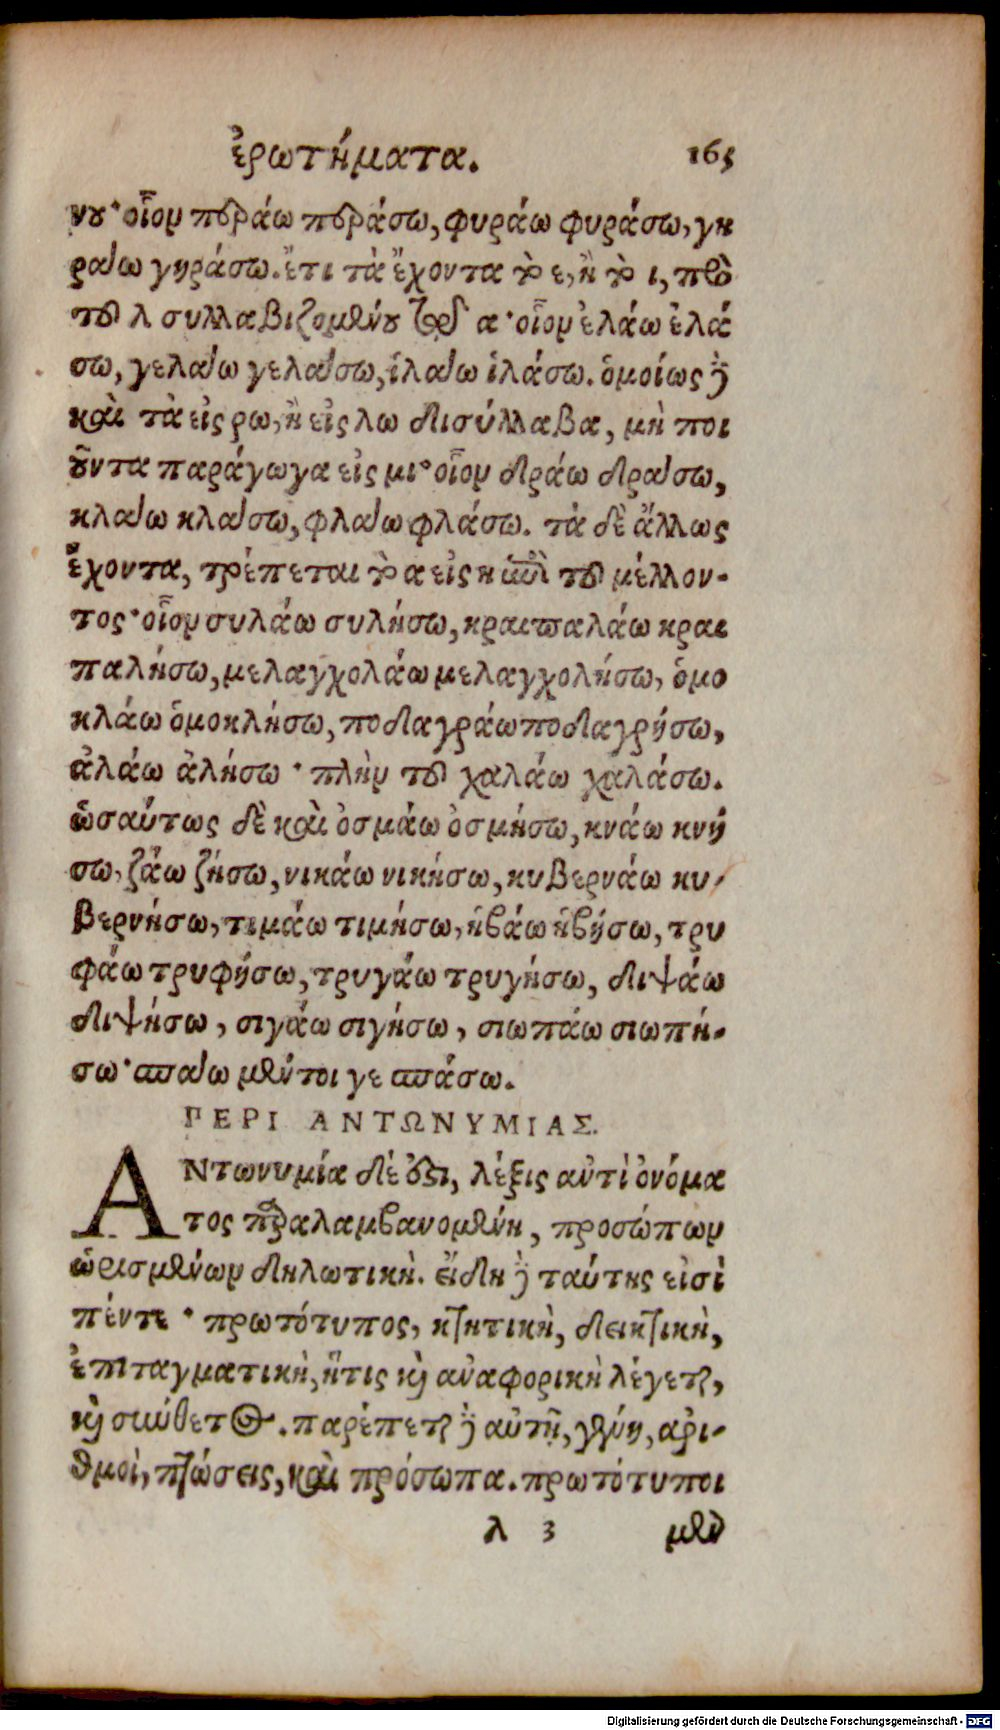 ἐρωτήματα. 165
νου· οἷον περάω περάσω, φυράω φυράσω, γη
ράω γηράσω. ἔτι τὰ ἔχοντα τὸ ε, ἢ τὸ ι, πρὸ
τοῦ λ συλλαβιζομένου πρὸς α· οἷον ἐλάω ἐλά
σω, γελάω γελάσω, ἱλάω ἱλάσω. ὁμοίως δὲ
καὶ τὰ εἰς ρω, ἢ εἰς λω δισύλλαβα, μὴ ποι
οῦντα παράγωγα εἰς μι· οἷον δράω δράσω,
κλάω κλάσω, φλάω φλάσω. τὰ δὲ ἄλλως
ἔχοντα, τρέπεται τὸ α εἰς η ἐπὶ τοῦ μέλλον-
τος· οἷον συλάω συλήσω, κραιπαλάω κραι
παλήσω, μελαγχολάω μελαγχολήσω, ὁμο
κλάω ὁμοκλήσω, ποδαγράω ποδαγρήσω,
ἀλάω ἀλήσω· πλὴν τοῦ χαλάω χαλάσω.
ὡσαύτως δὲ καὶ ὀσμάω ὀσμήσω, κνάω κνή
σω, ζάω ζήσω, νικάω νικήσω, κυβερνάω κυ-
βερνήσω, τιμάω τιμήσω, ἡβάω ἡβήσω, τρυ
φάω τρυφήσω, τρυγάω τρυγήσω, διψάω
διψήσω, σιγάω σιγήσω, σιωπάω σιωπή-
σω· σπάω μέντοι γε σπάσω.
ΠΕΡΙ ΑΝΤΩΝΥΜΙΑΣ.
ΑΝτωνυμία δέ ἐστι, λέξις ἀντὶ ὀνόμα
τος παραλαμβανομένη, προσώπων
ὡρισμένων δηλωτικὴ. εἴδη δὲ ταύτης εἰσὶ
πέντε· πρωτότυπος, κτητικὴ, δεικτικὴ,
ἐπιταγματικὴ, ἥτις καὶ ἀναφορικὴ λέγεται,
καὶ σύνθετος. παρέπεται δὲ αὐτῇ, γένη, ἀρι-
θμοὶ, πτώσεις, καὶ πρόσωπα. πρωτότυποι
λ 3 μὲν
Digitalisierung gefördert durch die Deutsche Forschungsgemeinschaft - DFG